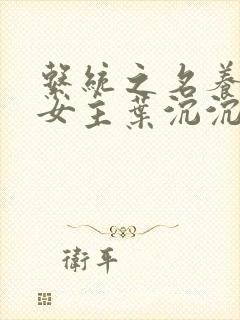 繫統之名養
女主葉沉沉
衛平